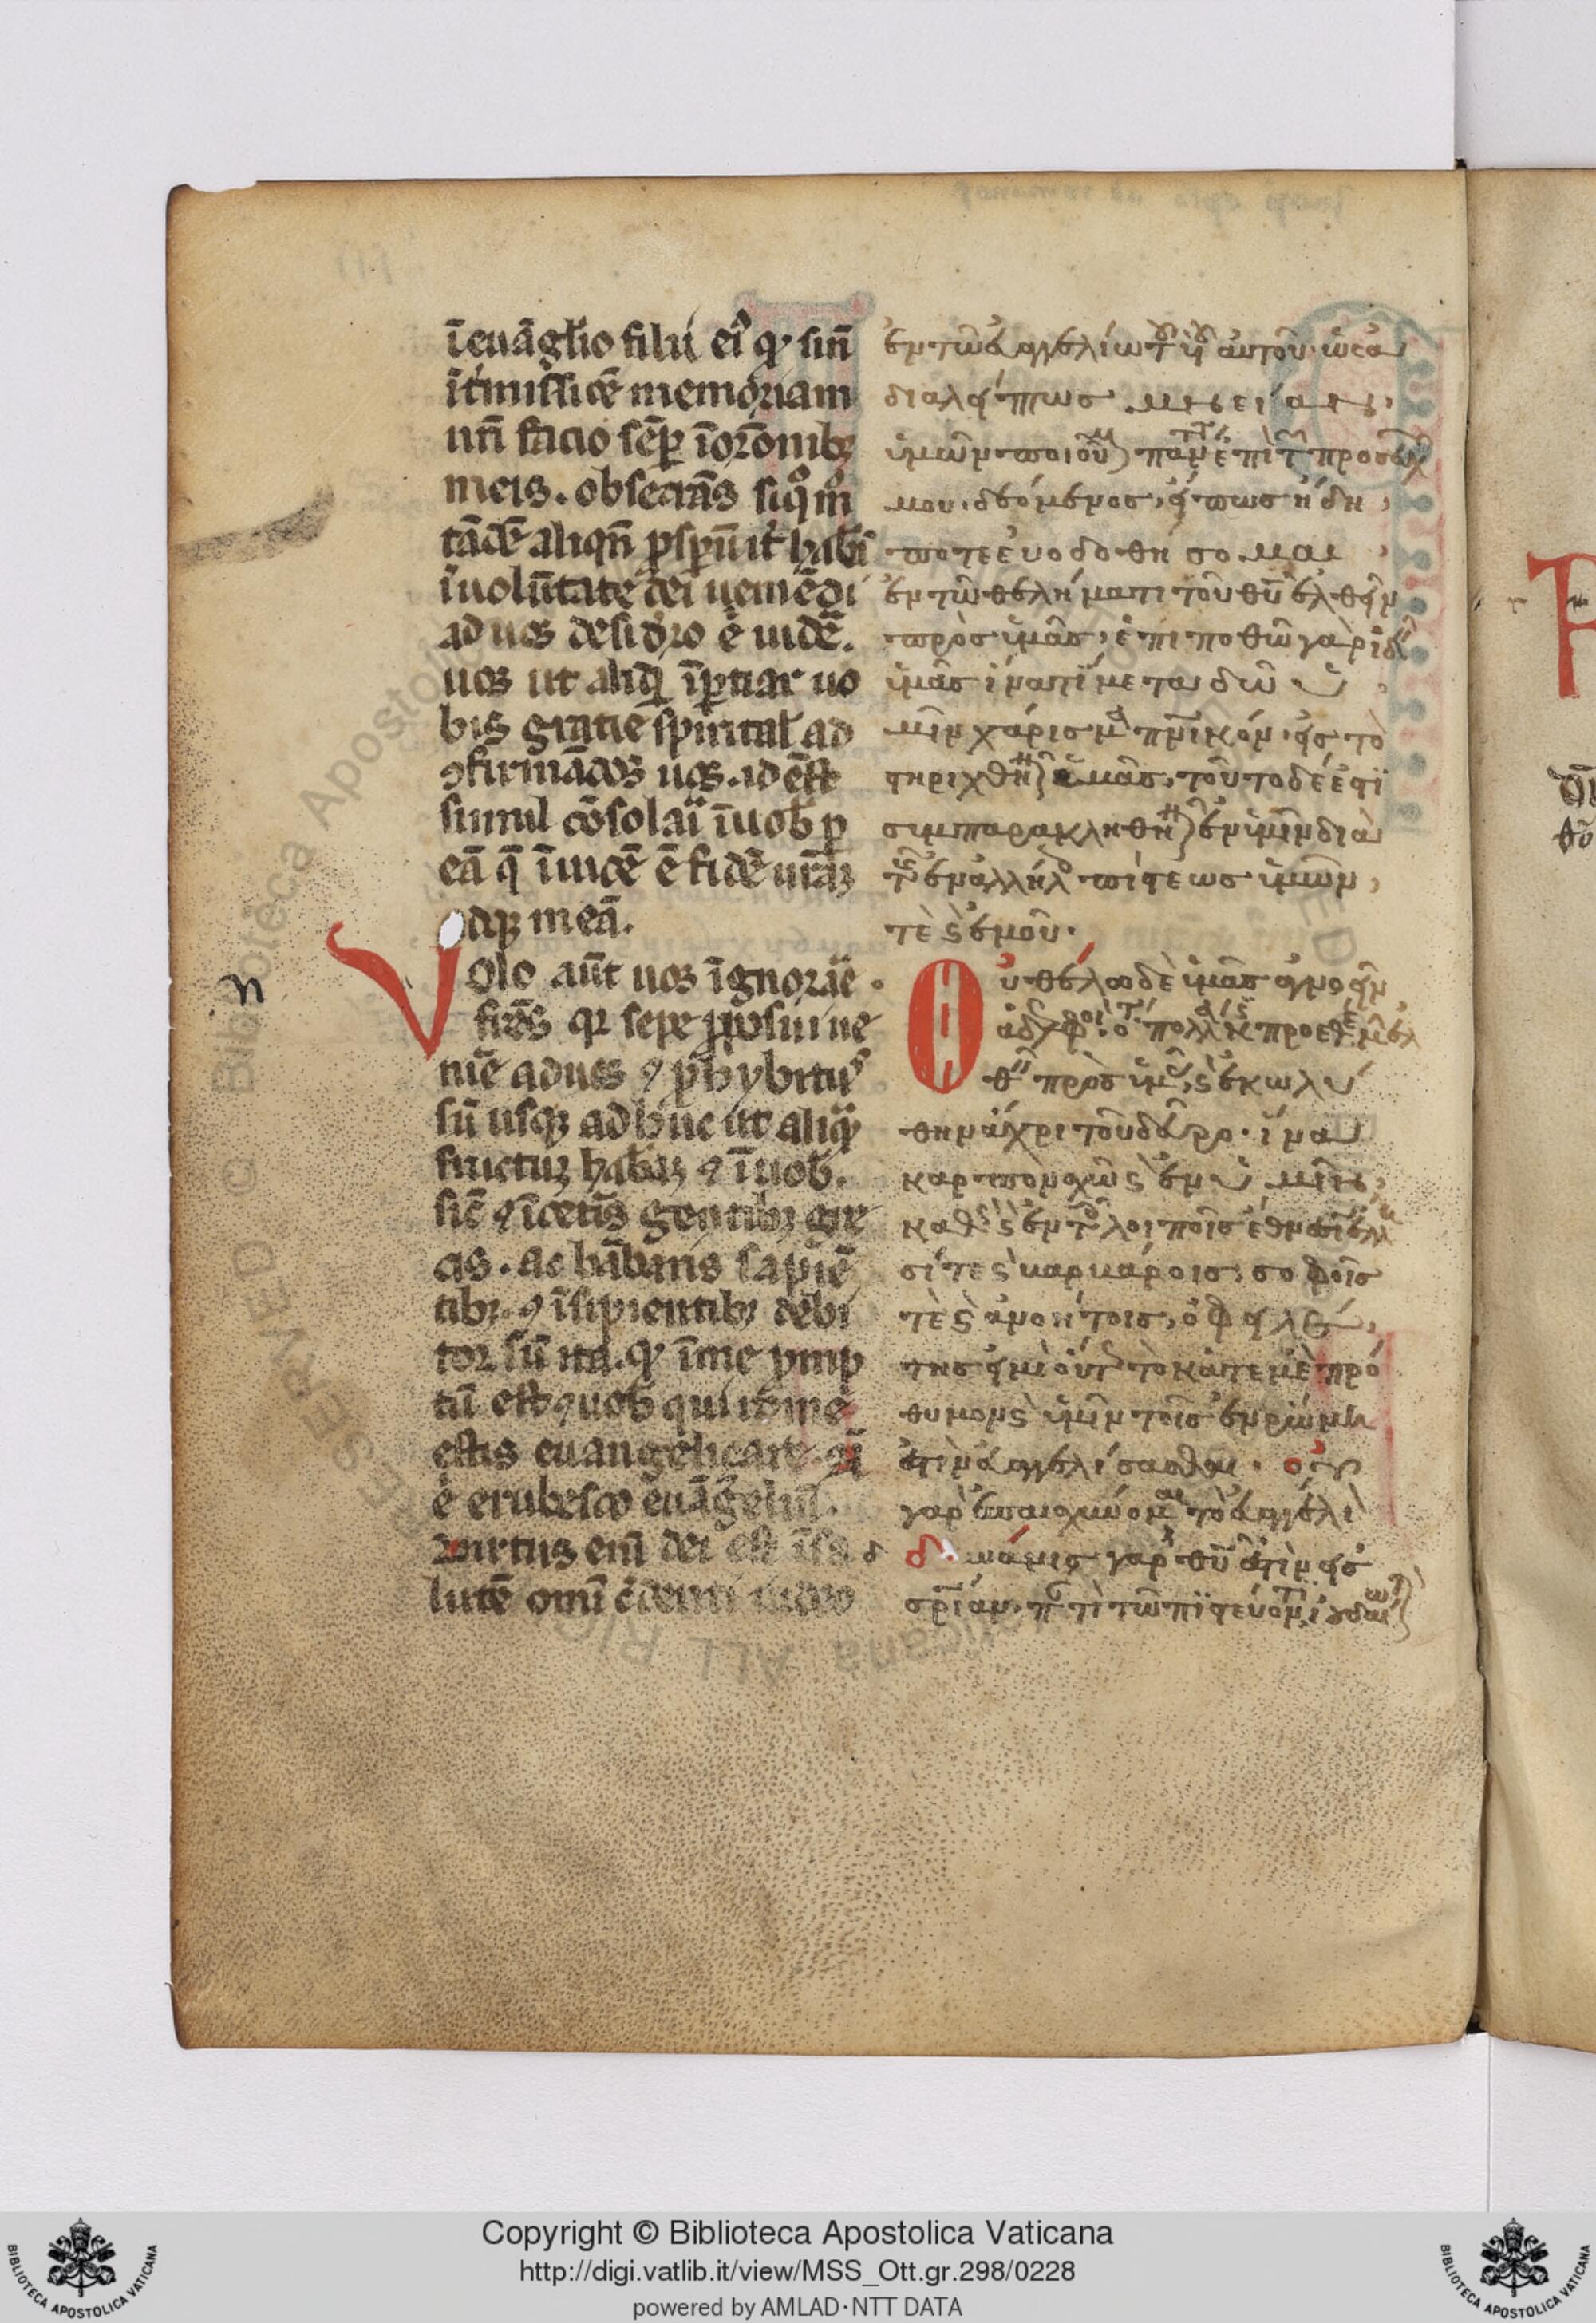 ī euāglio filii ei᾽ qꝫ sīn
īt᾽missiōe memoriam
ur̄i facio sēp̄ ī or̄onibꝫ
meis. obsecrās siq̊ m̊
tādē aliqn̄ ꝓsꝑū it᾽ habā
ī volūtate dei veniēdi
ad vos desidero ē vidē.
vos ut aliqd̄ īꝑtiar vo
bis gratie spirital᾽ ad
ꝯfirmādos vos. id est
simul cōsolari ī vob̄ ꝑ
eā q̄ īvicē ē fidē vrāꝫ
atqꝫ meā.
Volo aūt vos īgnorare
fr̄es qꝛ sepe ꝓposui ve
nire ad vos ⁊ ꝓhybitus
sū usqꝫ adhuc ut aliquē
fructuꝫ habeā ⁊ ī vob̄.
sic̄ ⁊ ī cetis gentibꝫ gre
cis. ac barbaris sapiē
tibꝫ. ⁊ īsipientibꝫ debi
tor sū ita. qꝫ ī me ꝓmp
tū est ⁊ vob̄ qui rome
estis euangelizare. nō
ē erubesco euāgeliū.
virtus enī dei est ī sa
lutē omī credenti iudeo
ἐν τῶ εὐαγγελίω τοῦ υἱοῦ αὐτοῦ· ὡς ἀ
διαλείπτως μνείαν
ὑμῶν ποιοῦμ(αι) πάντοτε ἐπὶ τῶν προσευχ
μου. δεόμενος, εἴ πως ἤδη
ποτὲ εὐοδοθήσομαι
ἐν τῶ θελήματι τοῦ θῦ ἐλθεῖν
πρὸς ὑμᾶς, ἐπιποθῶ γὰρ ἰδεῖ
ὑμᾶς ἵνα τί μεταδῶ ὑ
μῖν χάρισμα πνικόν· εἰς τὸ
στηριχθῆναι ὑμᾶς, τοῦτο δέ ἐστι
συμπαρακληθῆναι ἐν ὑμῖν διὰ
τῆς ἐν ἀλλήλοις πίστεως ὑμῶν,
τὲ ϗ ἐμοῦ.
Οὐ θέλω δὲ ὑμᾶς ἀγνοεῖν
ἀδελφοί ὅτι πολλάκις προεθέμην ἐλ
θεῖν πρὸς ὑμᾶς, ϗ ἐκωλύ
θην ἄχρι τοῦ δεῦρο. ἵνα
καρπὸν σχῶ ϗ ἐν ὑμῖν,
καθὼς ϗ ἐν τοῖς λοιποῖς ἔθνεσιν ἕλλη
σί τε ϗ βαρβάροις, σοφοῖς
τὲ ϗ ἀνοήτοις, ὀφειλέ
της εἰμὶ οὕτω τὸ κατ᾽ ἐμὲ πρό
θυμον ϗ ὑμῖν τοῖς ἐν ρώμη
εὐαγγελίσασθαι. οὐ
γὰρ ἐπαισχύνομαι τὸ εὐαγγέλι
δύναμις γὰρ θῦ ἐστὶν εἰς
σρίαν. παντὶ τῶ πιστεύοντι, ἰουδαίω
Copyright © Biblioteca Apostolica Vaticana
http://digi.vatlib.it/view/MSS_Ott.gr.298/0228
powered by AMLAD·NTT DATA